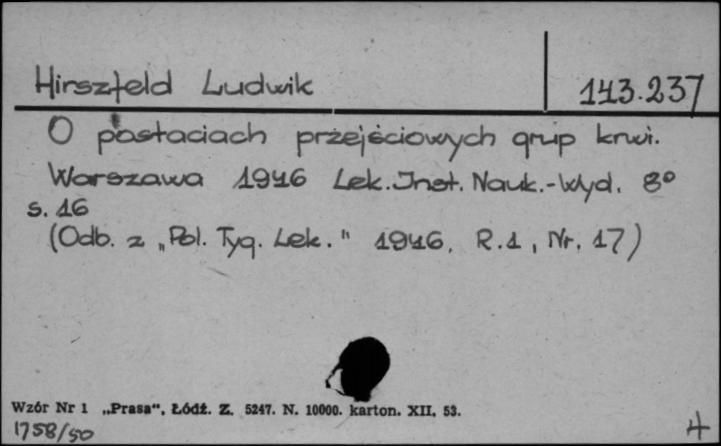 Hirszfeld Ludwik 143.237
O postaciach przejściowych grup krwi.
Warszawa 1946 Lek. Inst. Nauk.-Wyd. 8°
s. 16
(Odb. z „Pol. Tyg. Lek." 1946. R.1, Nr. 17)
Wzór Nr 1 „Prasa", Łódź. Z. 5247. N. 10000. karton. XII. 53.
1758/50 4